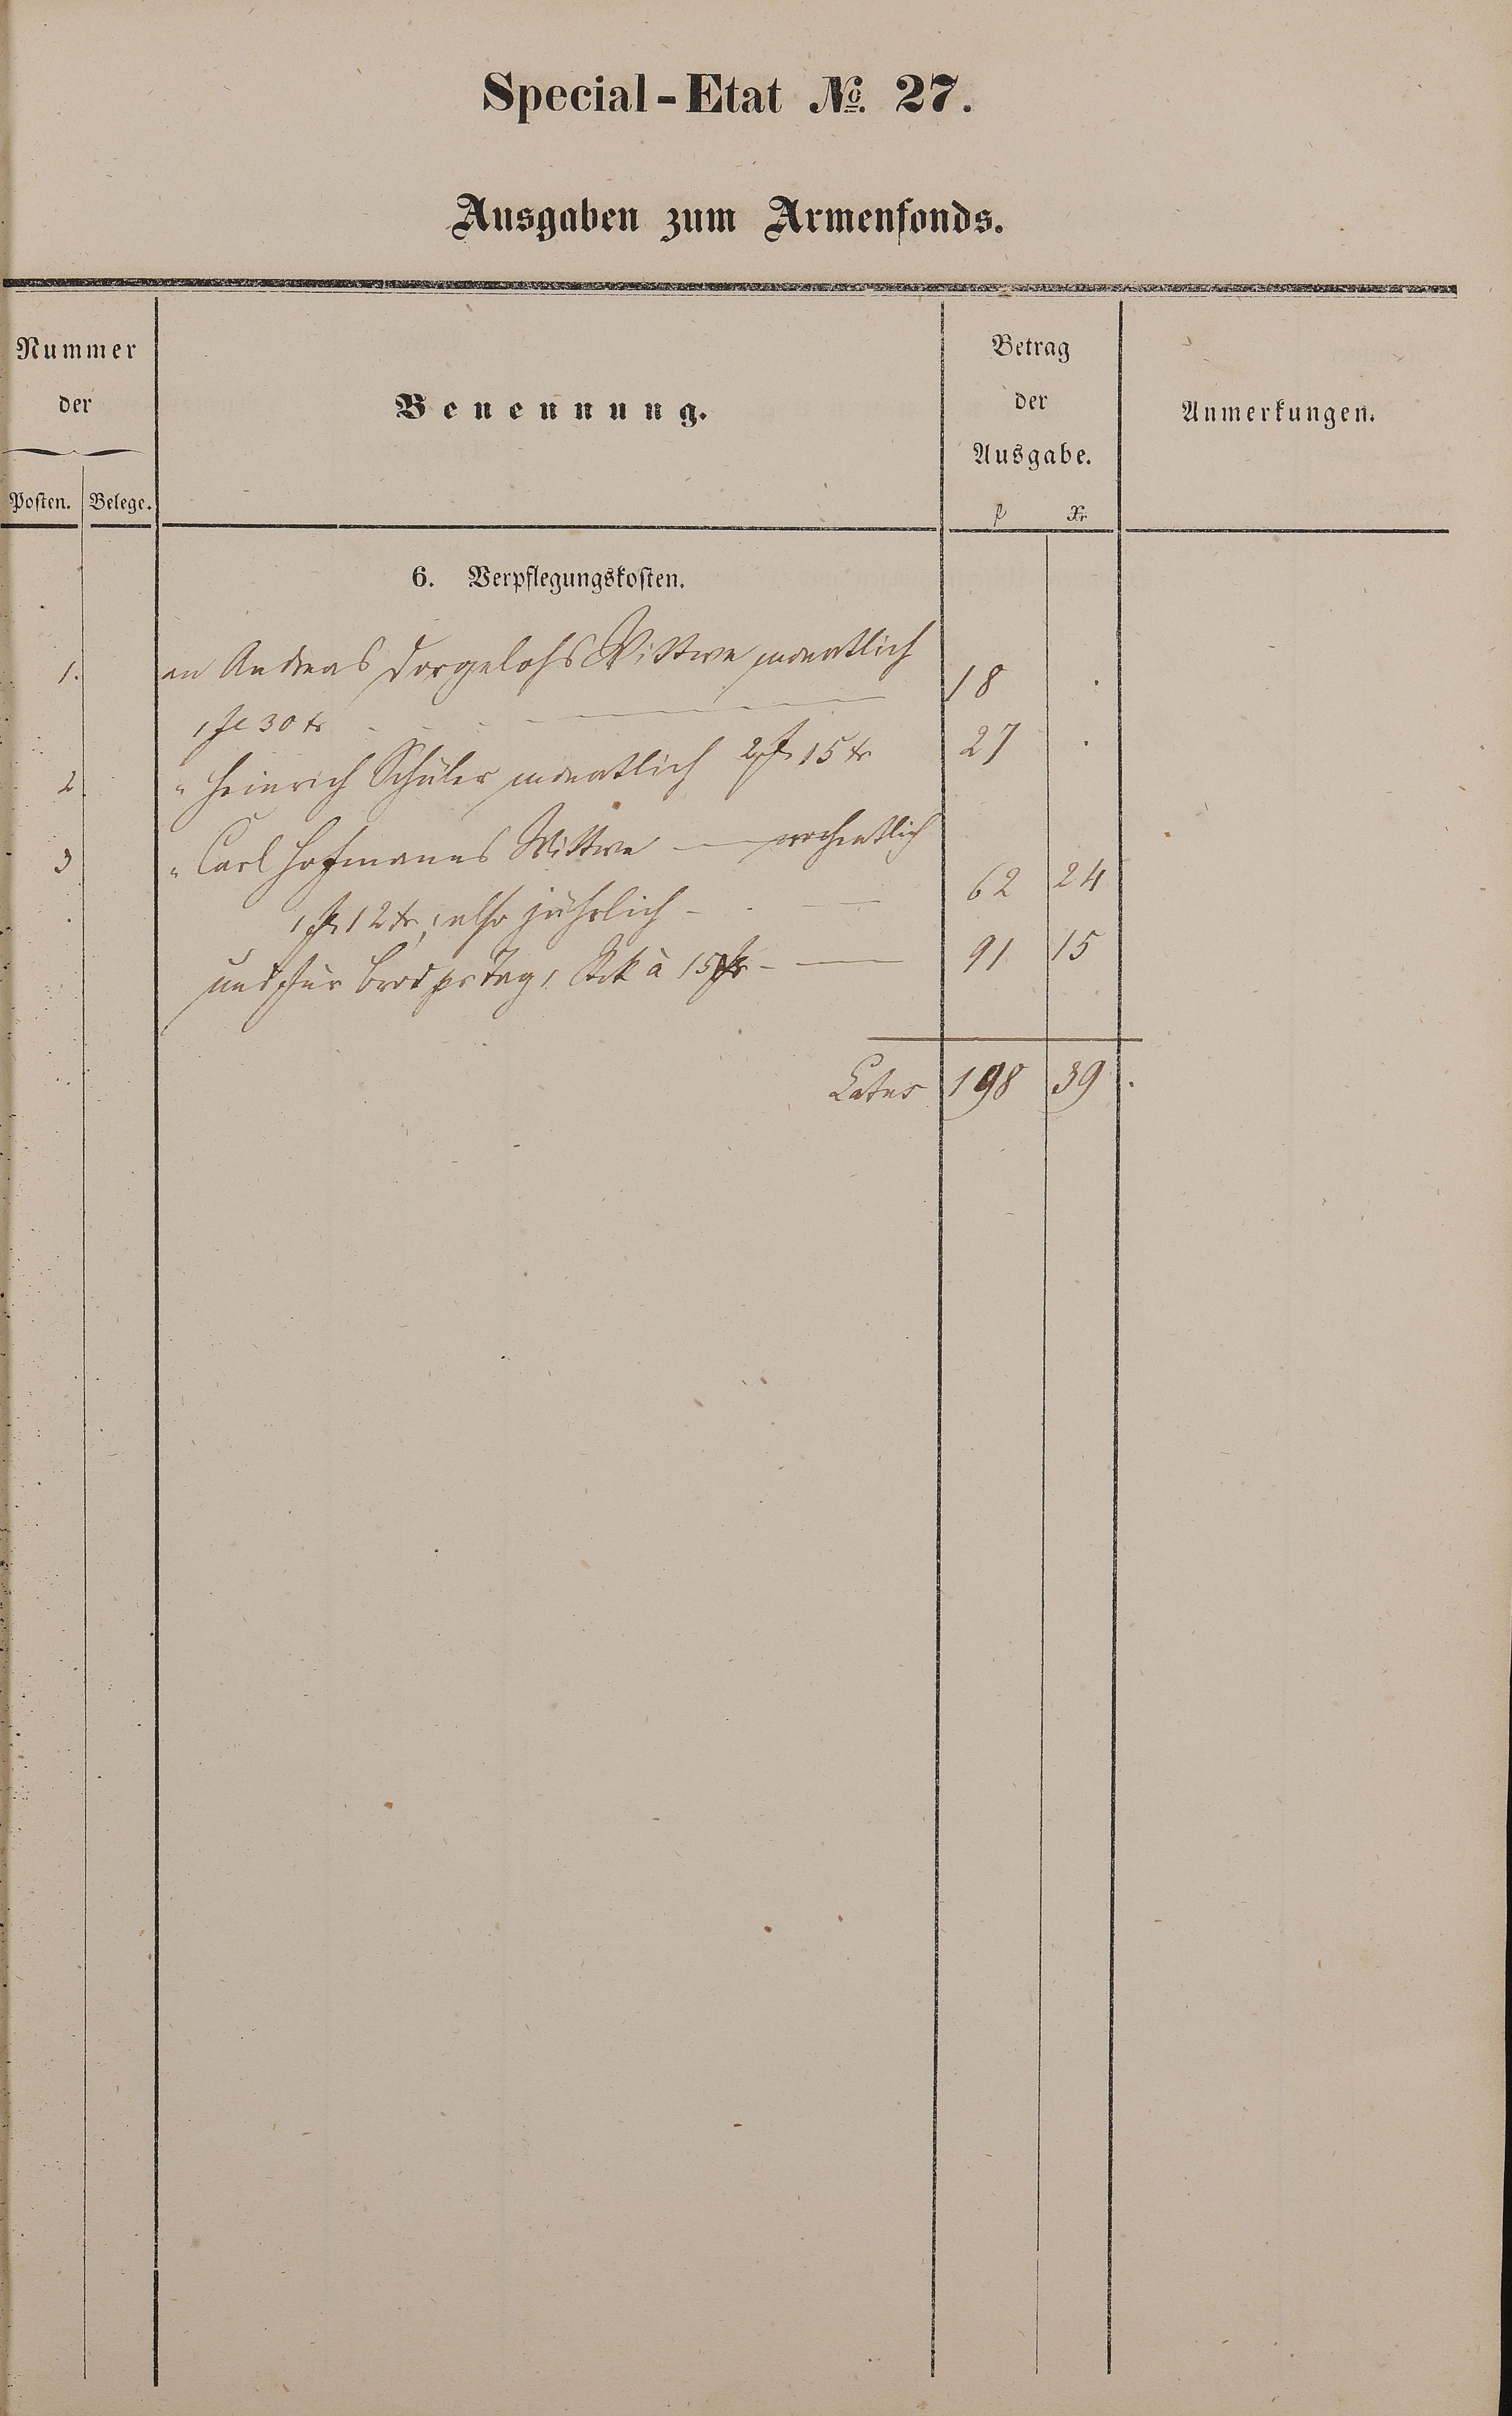 Special-Etat № 27.
Ausgaben zum Armenfonds.
Nummer
der
Posten. Belege.
Benennung.
Betrag
der
Ausgabe.
f Xr
Anmerkungen.
6. Verpflegungskosten.
1. an Andreas Dorgelohs Wittwe monatlich
1 fl 30 xr 18 .
2. " Heinrich Schüler monatlich 2 fl 15 xr 27 .
3 " Carl Hofmanns Wittwe — wochentlich
1 fl 12 xr, also jährlich - 62 24
und für Brod pr Tag 1 Stk à 15 xr - 91 15
Latus 198 39.